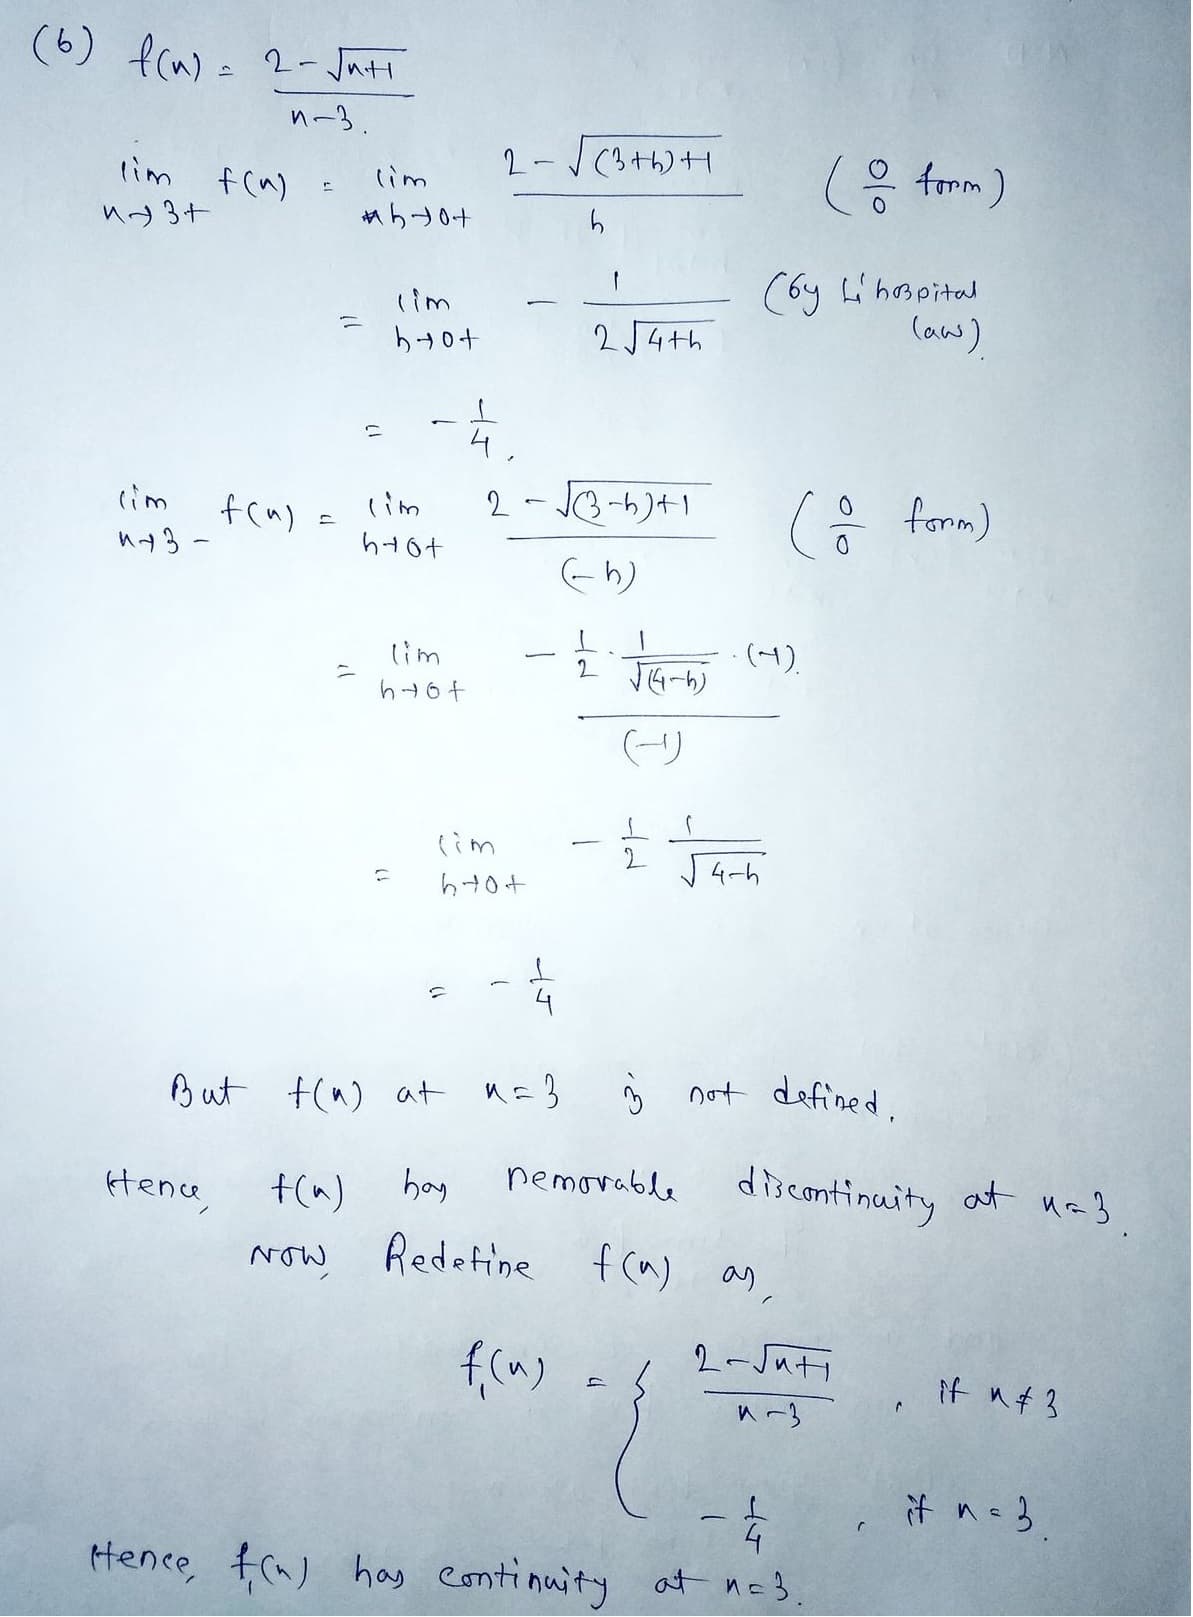 (6) f(x) = (2 - √(x+1)) / (x-3).
lim x→3+ f(x) = lim h→0+ (2 - √((3+h)+1)) / h (0/0 form)
= lim h→0+ - 1 / (2√(4+h)) (by Li hospital law).
= - 1/4.
lim x→3- f(x) = lim h→0+ (2 - √((3-h)+1)) / (-h) (0/0 form)
= lim h→0+ (- 1/2 · 1/√(4-h) · (-1)) / (-1)
= lim h→0+ - 1/2 1/√(4-h)
= - 1/4
But f(x) at x=3 is not defined.
Hence, f(x) has removable discontinuity at x=3.
Now, Redefine f(x) as,
f₁(x) = { (2-√(x+1)) / (x-3) , if x≠3
- 1/4 , if x=3.
Hence, f₁(x) has continuity at x=3.